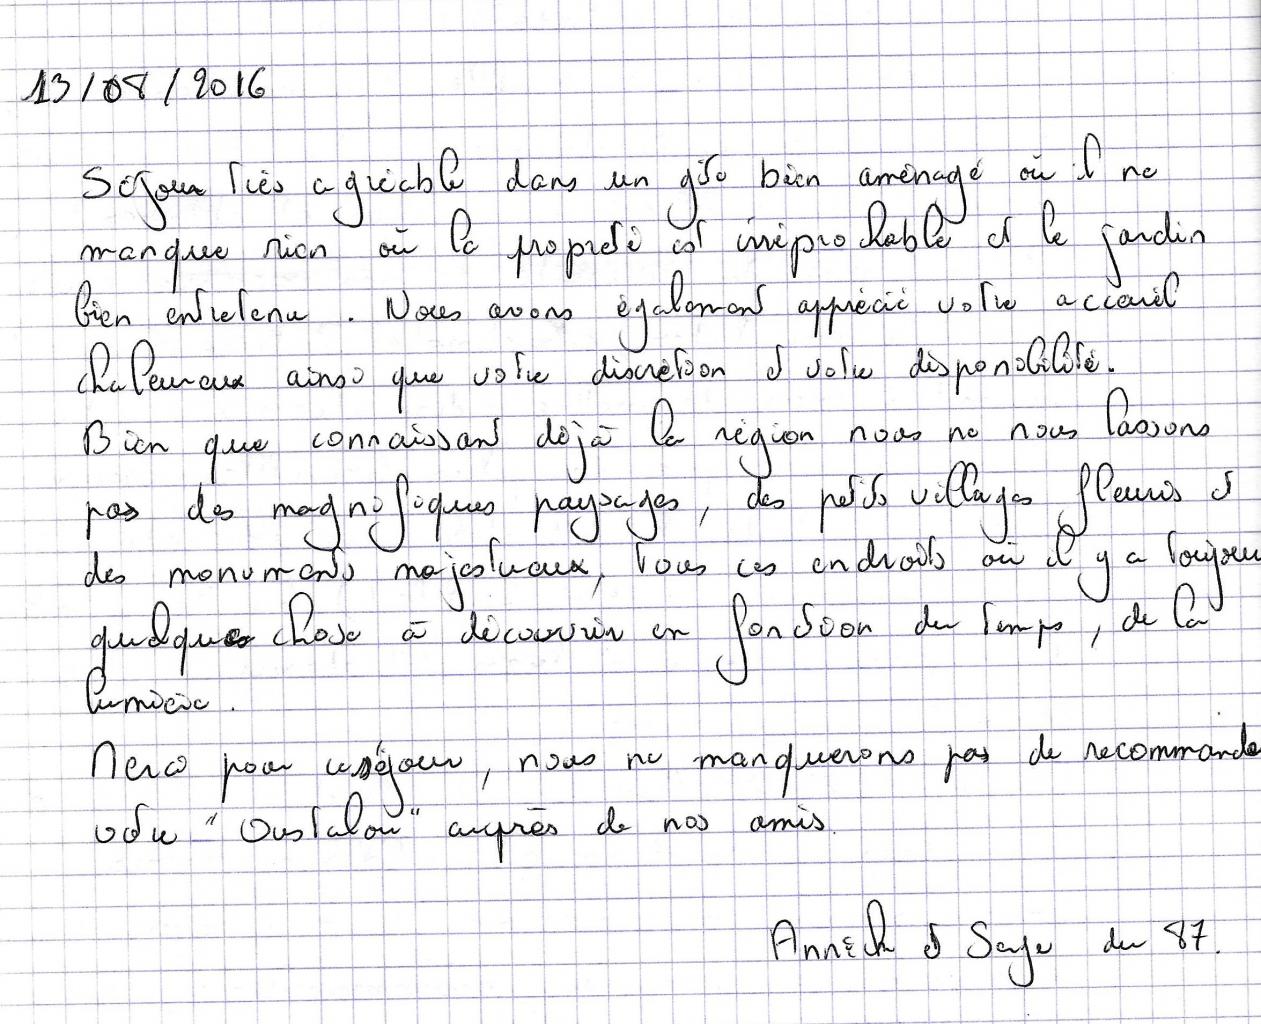 13/08/2016
Séjour très agréable dans un gîte bien aménagé où il ne
manque rien où la propreté est irréprochable et le jardin
bien entretenu. Nous avons également apprécié votre accueil
chaleureux ainsi que votre discrétion et votre disponibilité.
Bien que connaissant déjà la région nous ne nous lassons
pas des magnifiques paysages, des petits villages fleuris et
des monuments majestueux, tous ces endroits où il y a toujours
quelque chose à découvrir en fonction du temps, de la
lumière.
Merci pour ce séjour, nous ne manquerons pas de recommander
votre "Oustalou" auprès de nos amis.
Annick et Serge du 87.